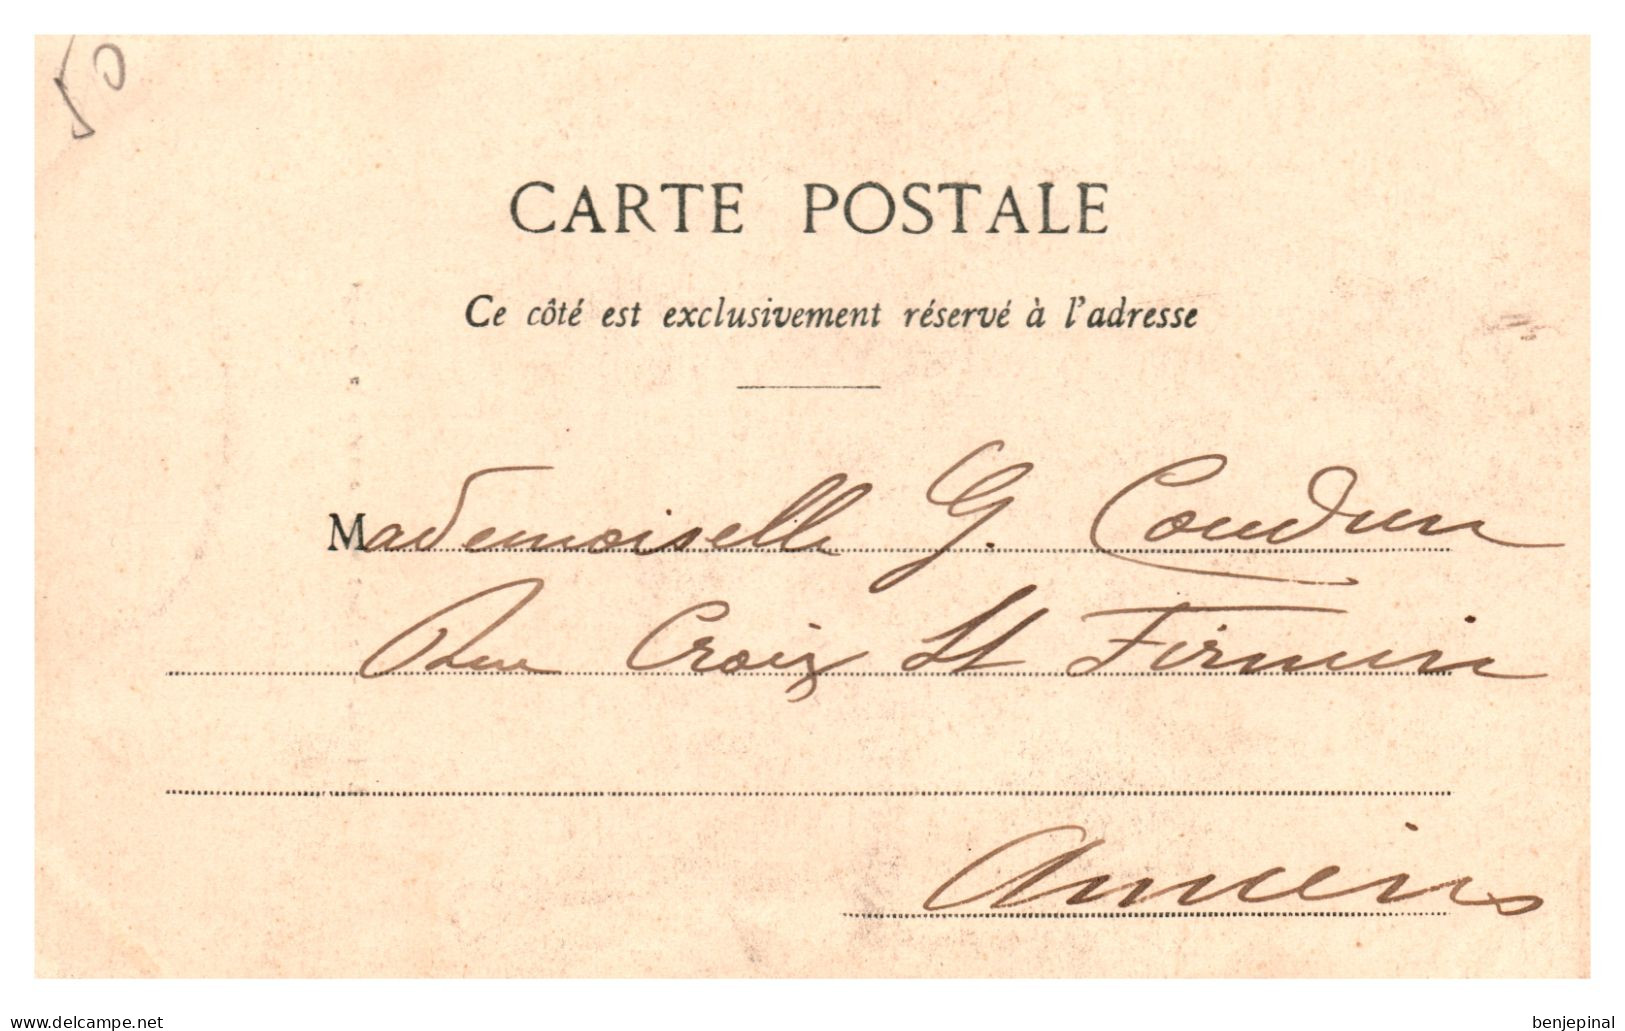 50
CARTE POSTALE
Ce côté est exclusivement réservé à l'adresse
Mademoiselle G. Coudun
Rue Croix St Firmin
Amiens
www.delcampe.net
benjepinal